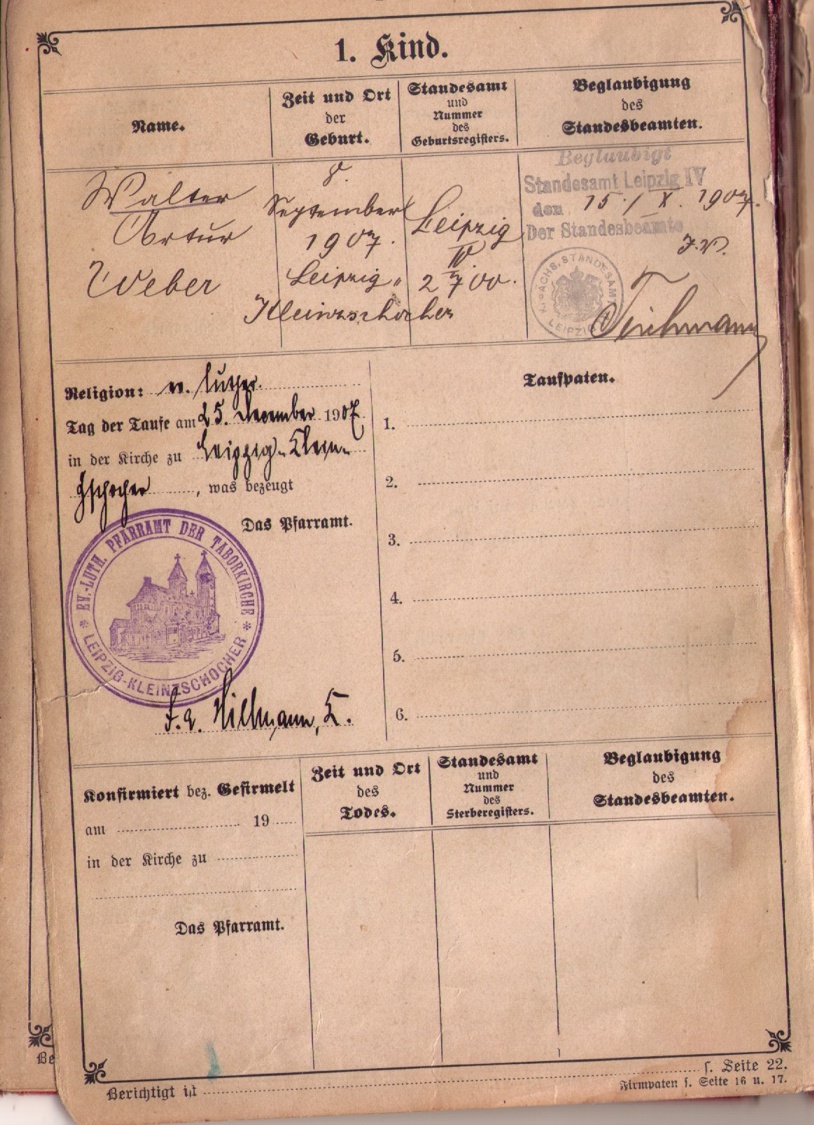 1. Kind.
Name.
Zeit und Ort
der
Geburt.
Standesamt
und
Nummer
des
Geburtsregisters.
Beglaubigung
des
Standesbeamten.
Walter
Artur
Weber
8.
September
1907.
Leipzig-
Kleinzschocher
Leipzig
IV
2700.
Beglaubigt
Standesamt Leipzig IV
den 15. / X. 1907.
Der Standesbeamte
I.V.
K. SÄCHS. STANDESAMT
LEIPZIG
Religion: ev. luther.
Tag der Taufe am 25. Dezember 1907
in der Kirche zu Leipzig-Klein-
zschocher, was bezeugt
Das Pfarramt.
EV.-LUTH. PFARRAMT DER TABORKIRCHE
LEIPZIG-KLEINZSCHOCHER
Hillmann,
Taufpaten.
1.
2.
3.
4.
5.
6.
Konfirmiert bez. Gefirmelt
am 19
in der Kirche zu
Das Pfarramt.
Zeit und Ort
des
Todes.
Standesamt
und
Nummer
des
Sterberegisters.
Beglaubigung
des
Standesbeamten.
Berichtigt ist
s. Seite 22.
Firmpaten s. Seite 16 u. 17.
Be